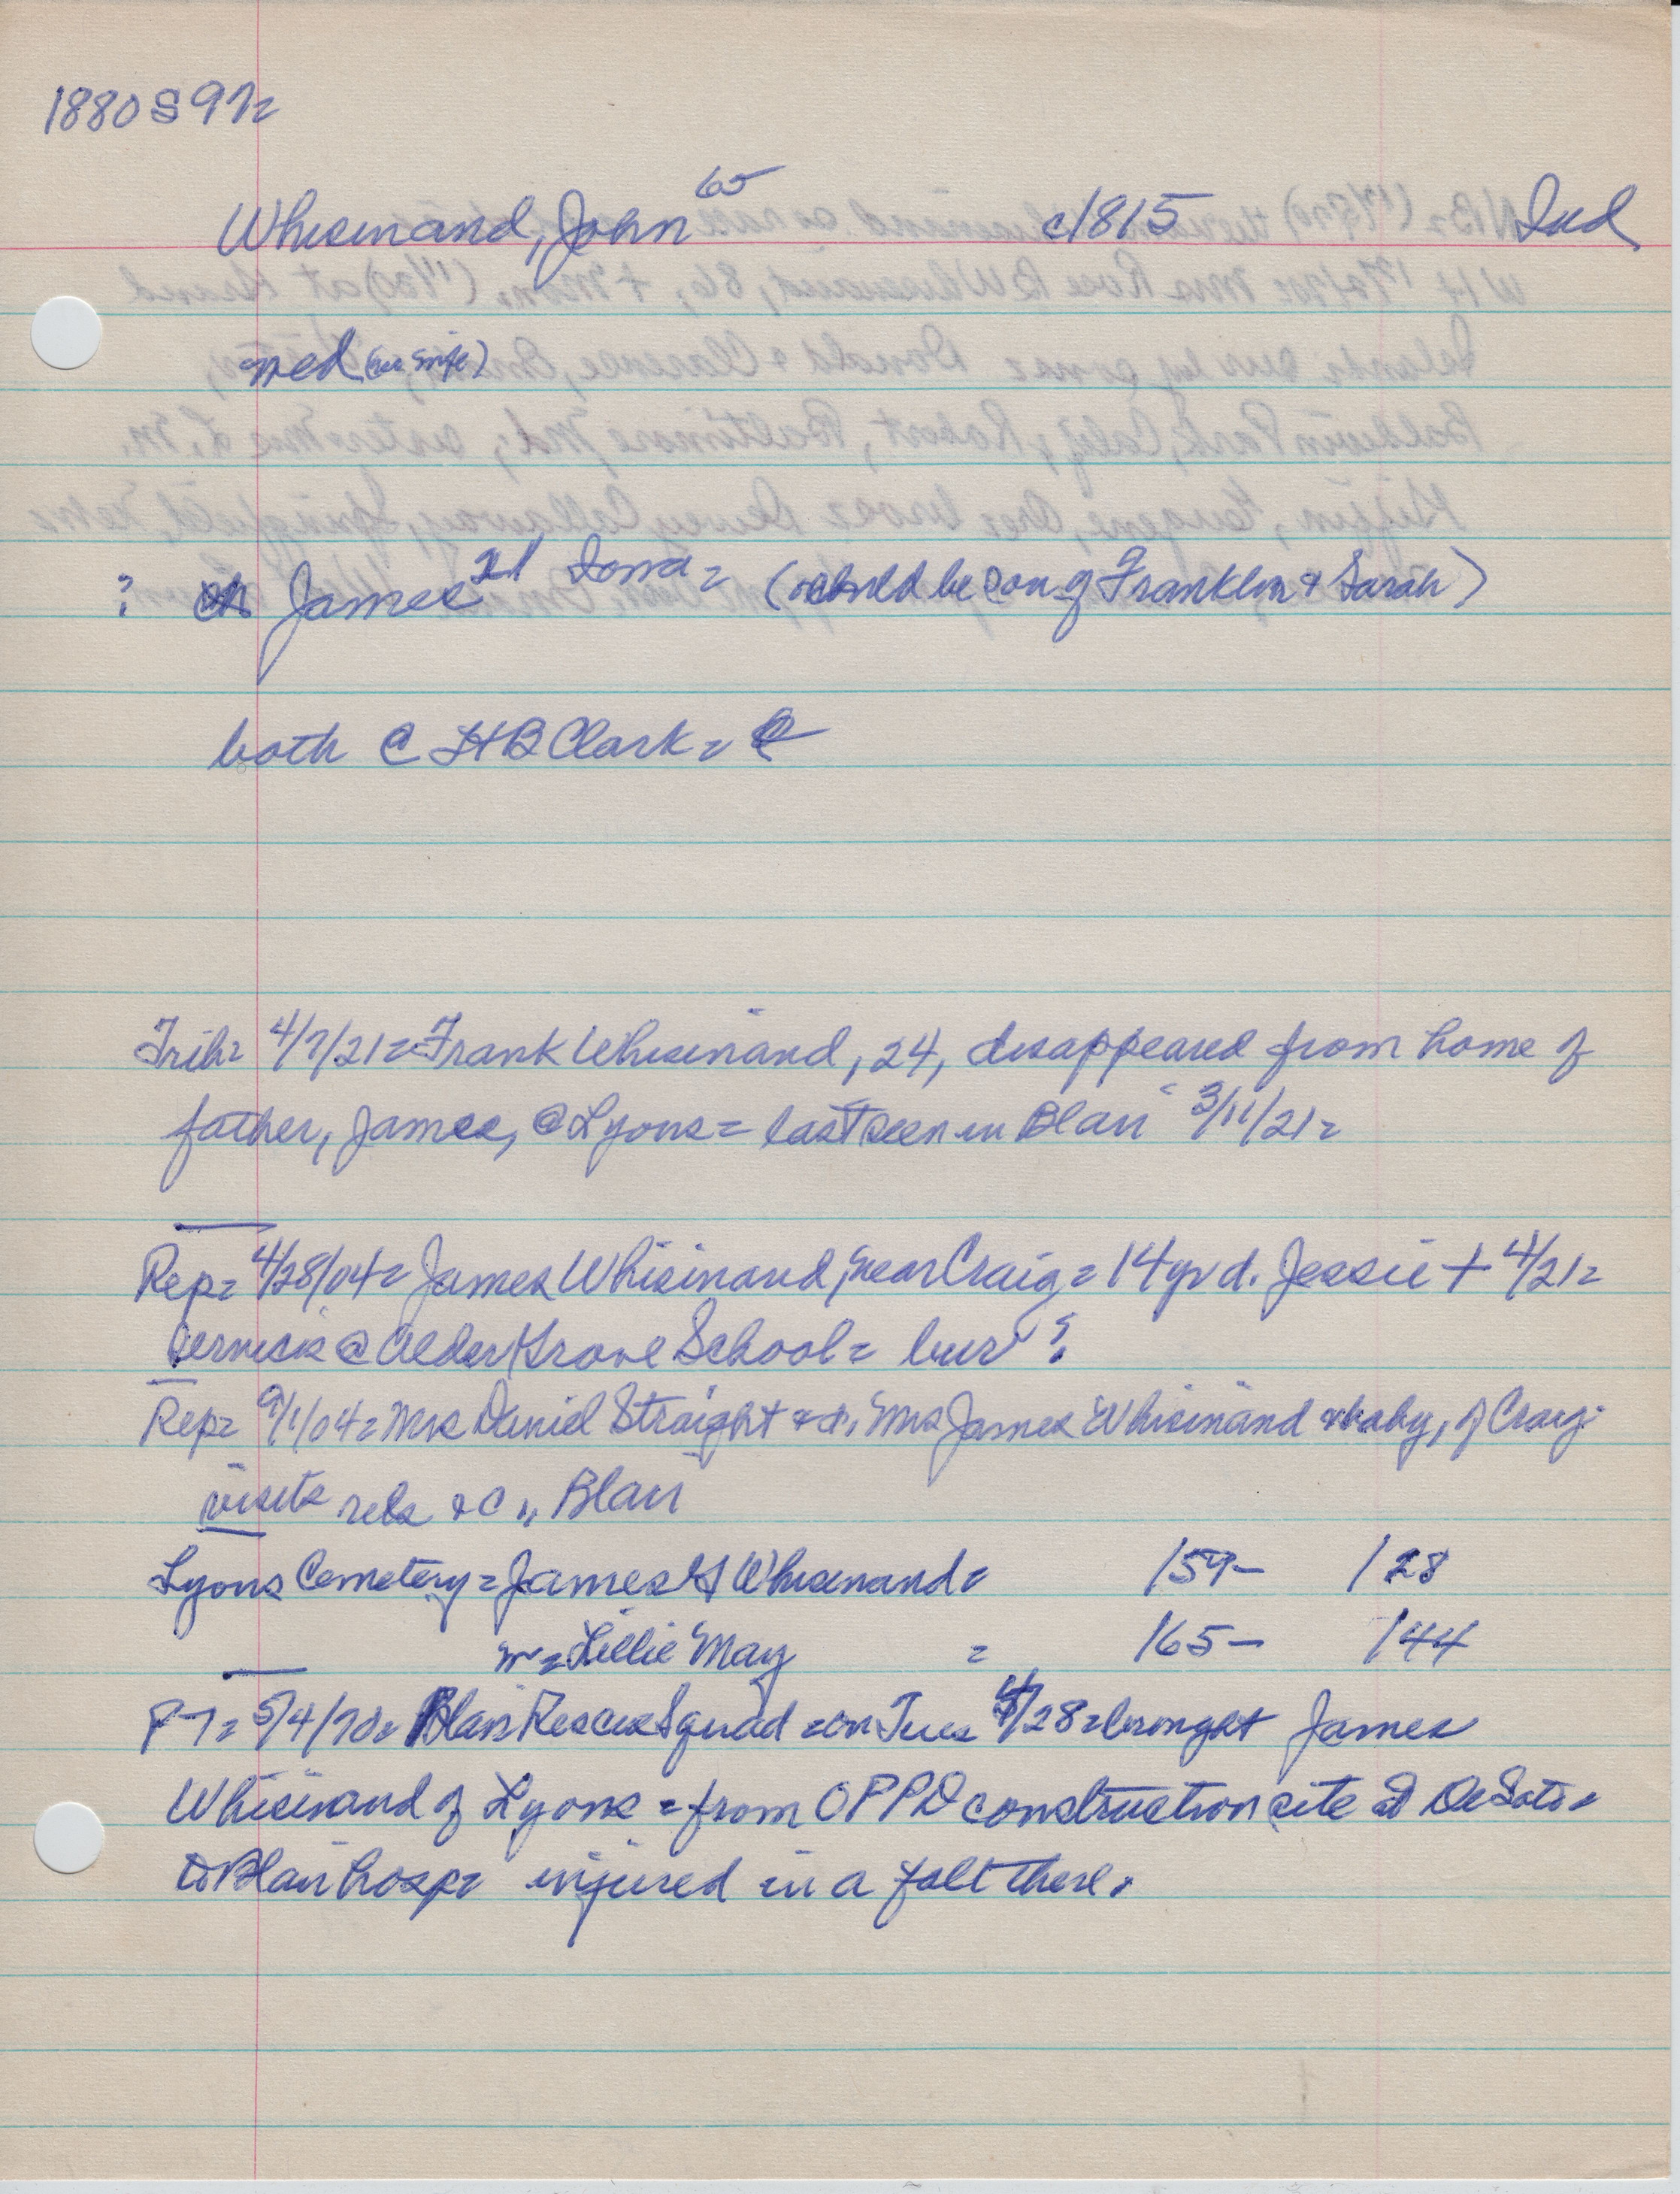 1880 S 972
Whisinand, John 65 c1815 Ind
med (no wife)
? ch James 21 Iowa = (should be son of Franklin & Sarah)
both @ HB Clark =
Trib = 4/7/21 = Frank Whisinand, 24, disappeared from home of
father, James, @ Lyons = last seen in Blair 3/11/21 =
Rep = 4/28/04 = James Whisinand, near Craig = 14 yr d. Jessie + 4/21 =
services @ Alder Grove School = bur ?
Rep = 9/1/04 = Mrs Daniel Straight & d. Mrs James Whisinand & baby, of Craig
visits rels &c, Blair
Lyons Cemetery = James H Whisinand = 159- 128
w = Lillie May = 165- 144
PT = 5/4/70 = Blair Rescue Squad = on Tues 4/28 = brought James
Whisinand of Lyons = from OPPD construction site at DeSoto =
to Blair hosp = injured in a fall there.